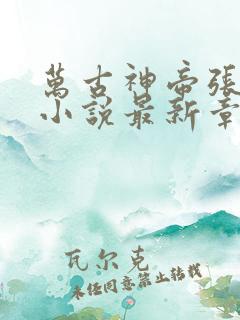 萬古神帝張
小說最新章
瓦尔克
未经同意禁止转载